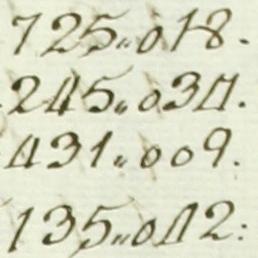 725„018.
245„034.
431„009.
135„042: